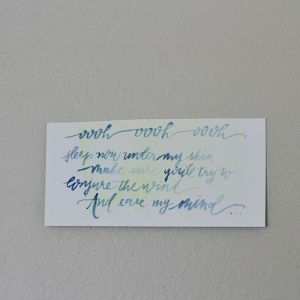 oooh oooh oooh
sleep now under my skin
make sure you'll try to
Conjure the wind
And ease my mind ...